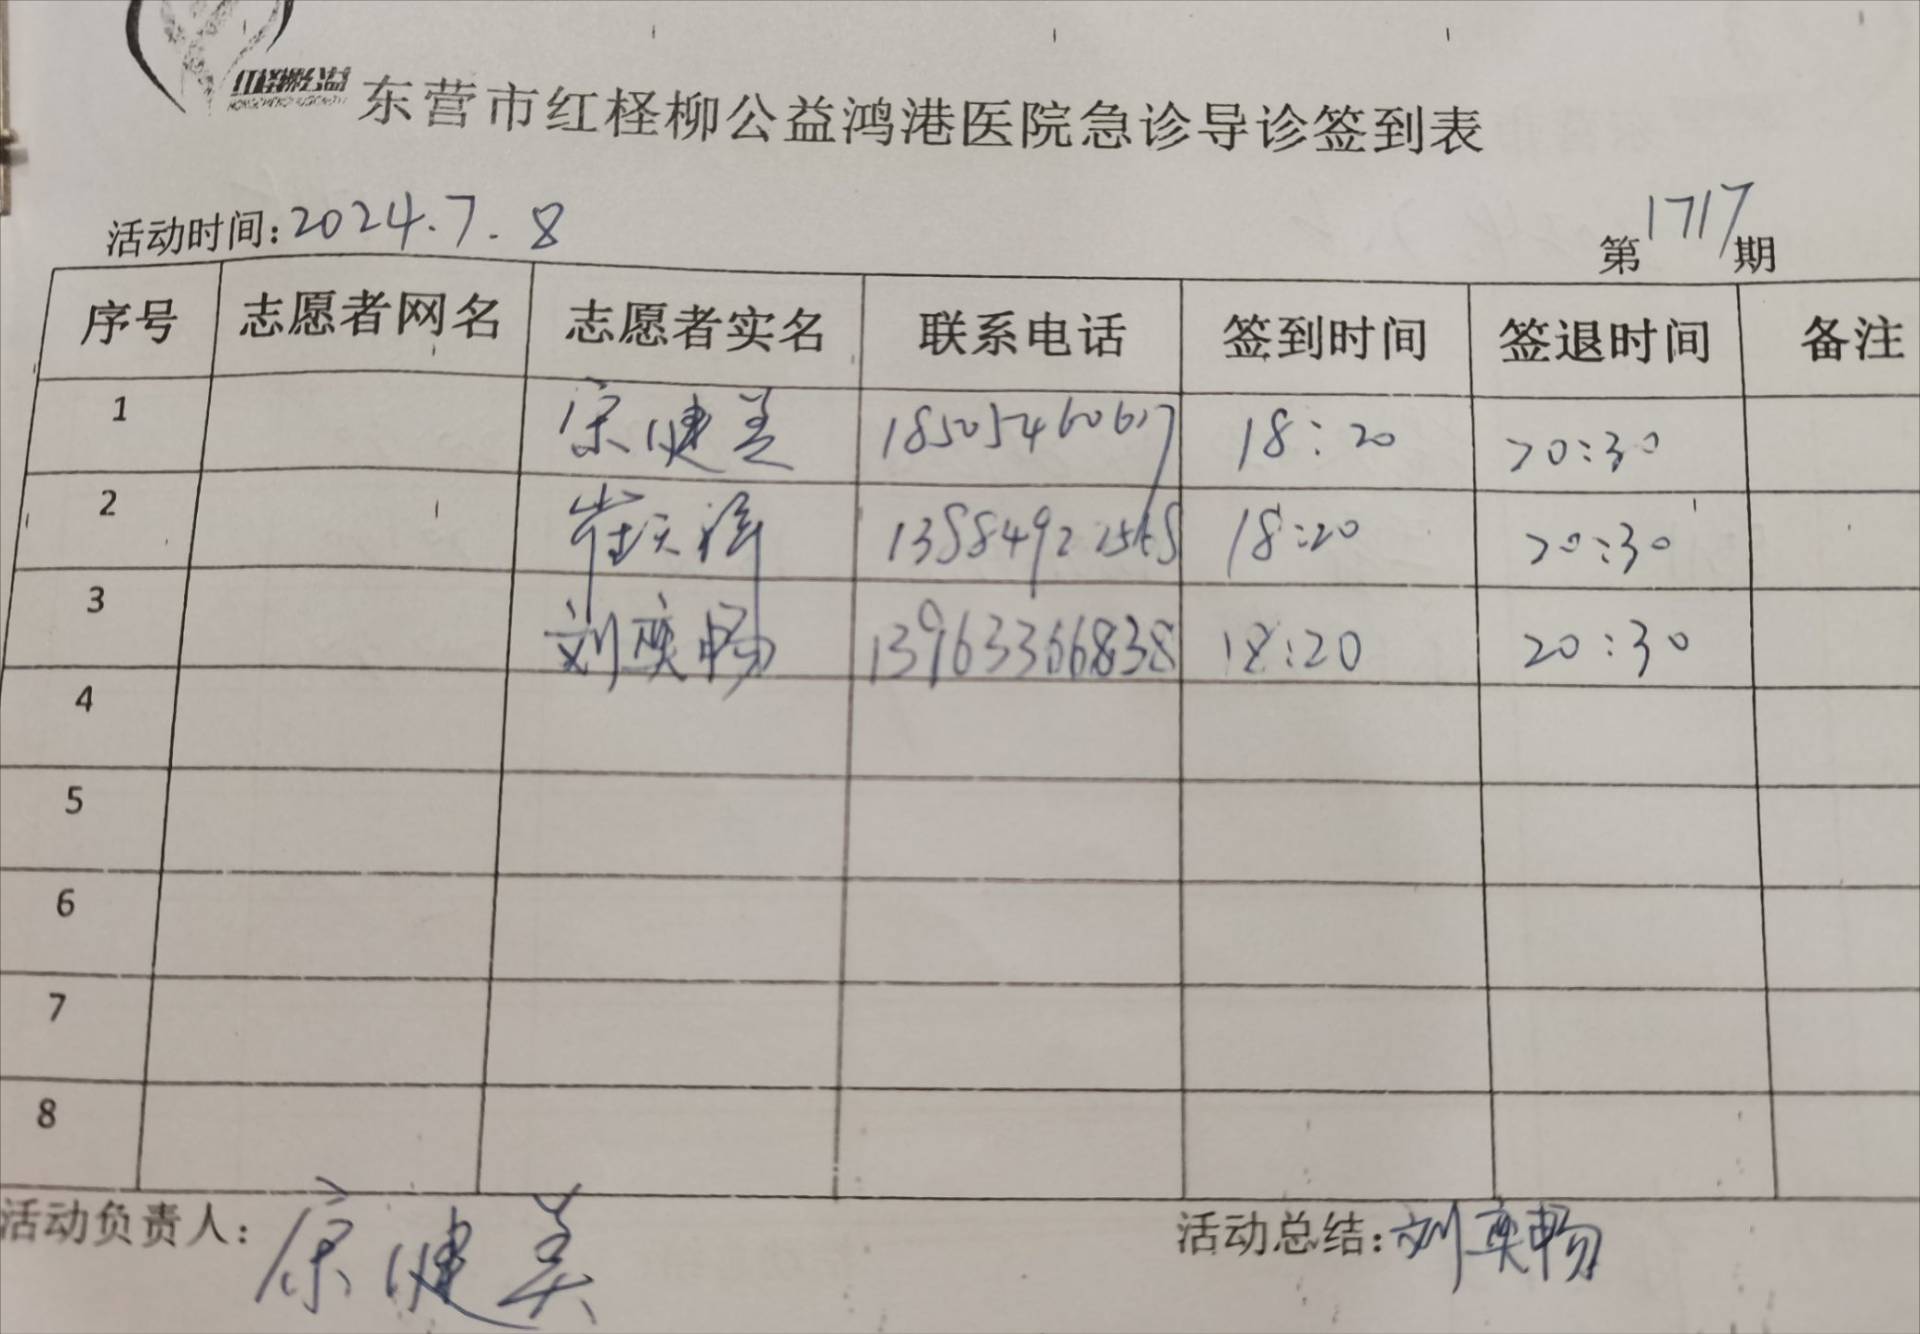 红柽柳公益
东营市红柽柳公益鸿港医院急诊导诊签到表
活动时间:2024.7.8 第1717期
序号 志愿者网名 志愿者实名 联系电话 签到时间 签退时间 备注
1 宗健美 18505460617 18:20 20:30
2 18:20 20:30
3 刘奕畅 13963366838 18:20 20:30
4
5
6
7
8
活动负责人:宗健美 活动总结:刘奕畅